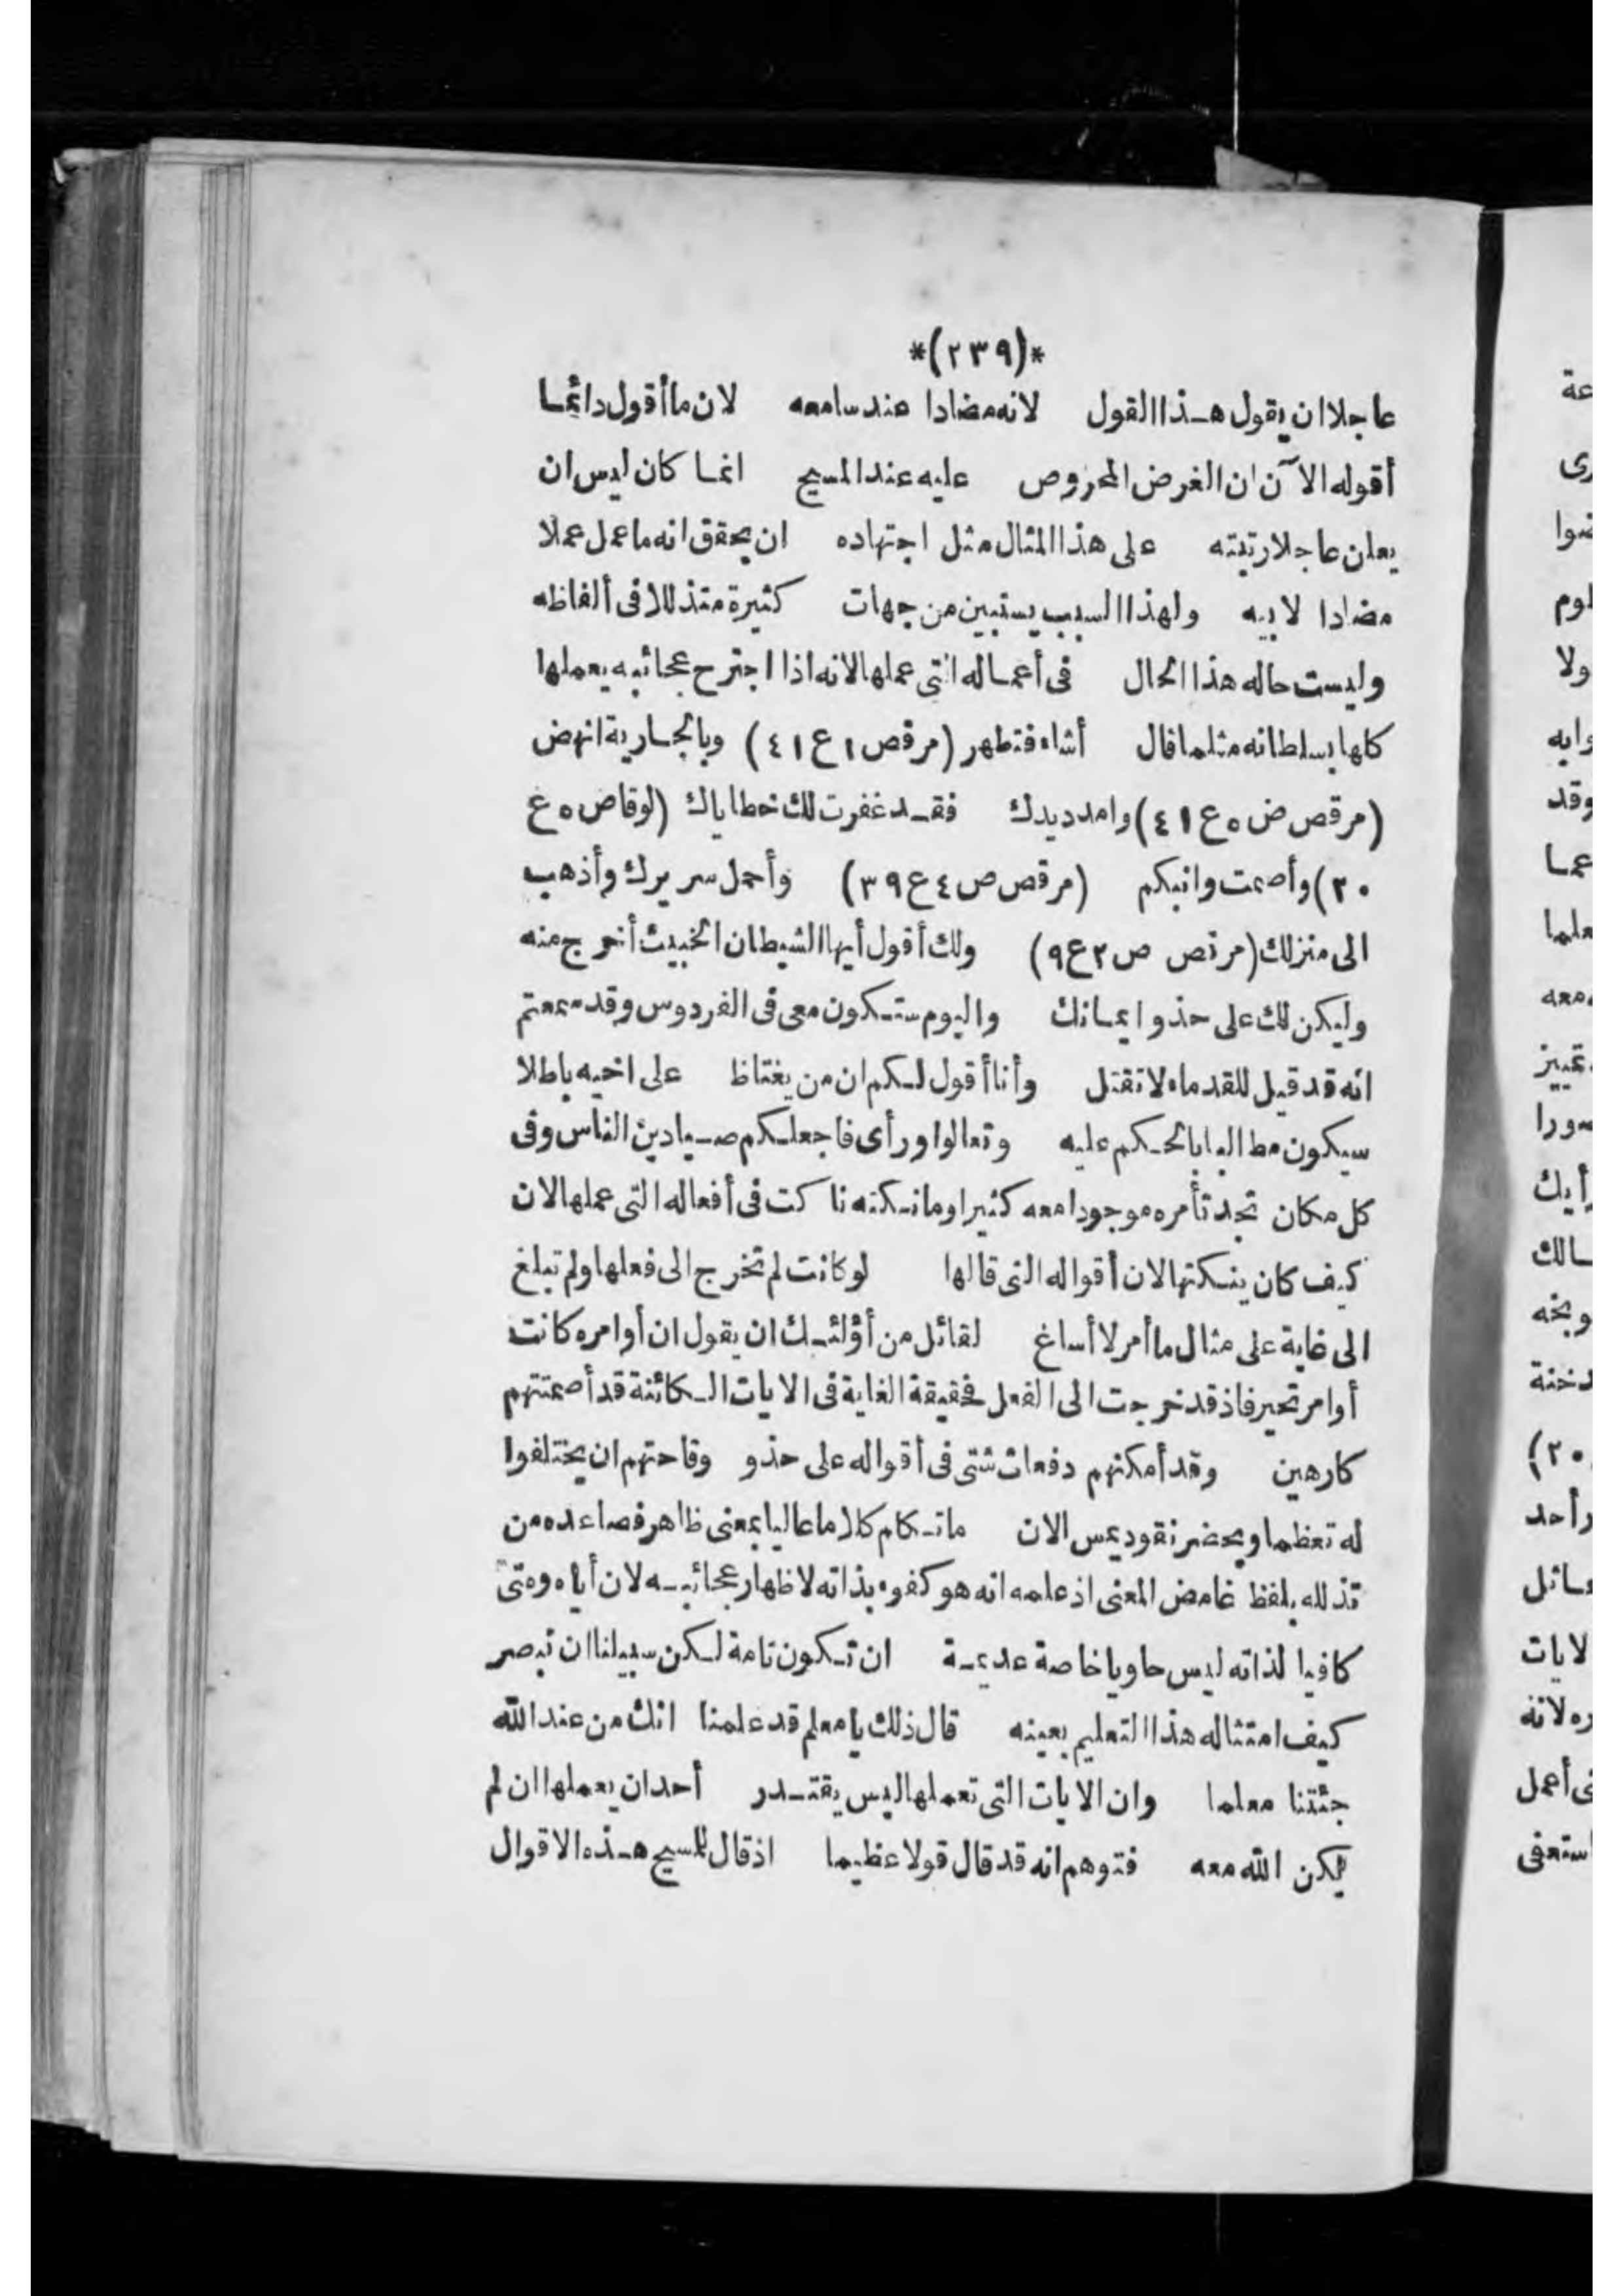 *(٢٣٩)*
عاجلا ان يقول هذا القول لانه مضادا عند سامعه لان ما أقول دائما
أقوله الآن ان الغرض المحروص عليه عند المسيح انما كان ليس ان
يعلن عاجلا رتبته على هذا المثال مثل اجتهاده ان يحقق انه ما عمل عملا
مضادا لابيه ولهذا السبب يستبين من جهات كثيرة متذللا فى ألفاظه
وليست حاله هذا الحال فى أعماله التى عملها لانه اذا اجترح عجائبه يعملها
كلها بسلطانه مثلما قال أشاء فتطهر (مرقص ١ ع ٤١) ويا جارية انهض
(مرقص ض ٥ ع ٤١) وامدد يدك فقد غفرت لك خطاياك (لوقا ص ٥ ع
٢٠) وأصمت وانبكم (مرقص ص ٤ ع ٣٩) وأحمل سريرك وأذهب
الى منزلك (مرقص ص ٢ ع ٩) ولك أقول أيها الشيطان الخبيث أخرج منه
وليكن لك على حذو ايمانك واليوم ستكون معى فى الفردوس وقد سمعتم
انه قد قيل للقدماء لا تقتل وأنا أقول لكم ان من يغتاظ على اخيه باطلا
سيكون مطالبا بالحكم عليه وتعالوا ورأى فاجعلكم صيادين الناس وفى
كل مكان تجد تأمره موجودا معه كثيرا وما نكته ناكت فى أفعاله التى عملها الان
كيف كان ينكتها لان أقواله التى قالها لو كانت لم تخرج الى فعلها ولم تبلغ
الى غاية على مثال ما أمر لا أساغ لقائل من أؤلئك ان يقول ان أوامره كانت
أوامر تحير فاذ قد خرجت الى الفعل فحقيقة الغاية فى الايات الكائنة قد أصمتتهم
كارهين وقد أمكنهم دفعات شتى فى أقواله على حذو وقاحتهم ان يختلفوا
له تعظما ويحضر نقوديمس الان ما تكلم كلاما عاليا بمعنى ظاهر فصاعده من
تذلله بلفظ غامض المعنى اذ علمه انه هو كفوء بذاته لاظهار عجائبه لان أباه ومتى
كافيا لذاته ليس حاويا خاصة عديمة ان تكون تامة لكن سبيلنا ان نبصر
كيف امتثاله هذا التعليم بعينه قال ذلك يا معلم قد علمنا انك من عند الله
جئتنا معلما وان الايات التى تعملها ليس يقتدر أحد ان يعملها ان لم
يكن الله معه فتوهم انه قد قال قولا عظيما اذ قال للمسيح هذه الاقوال